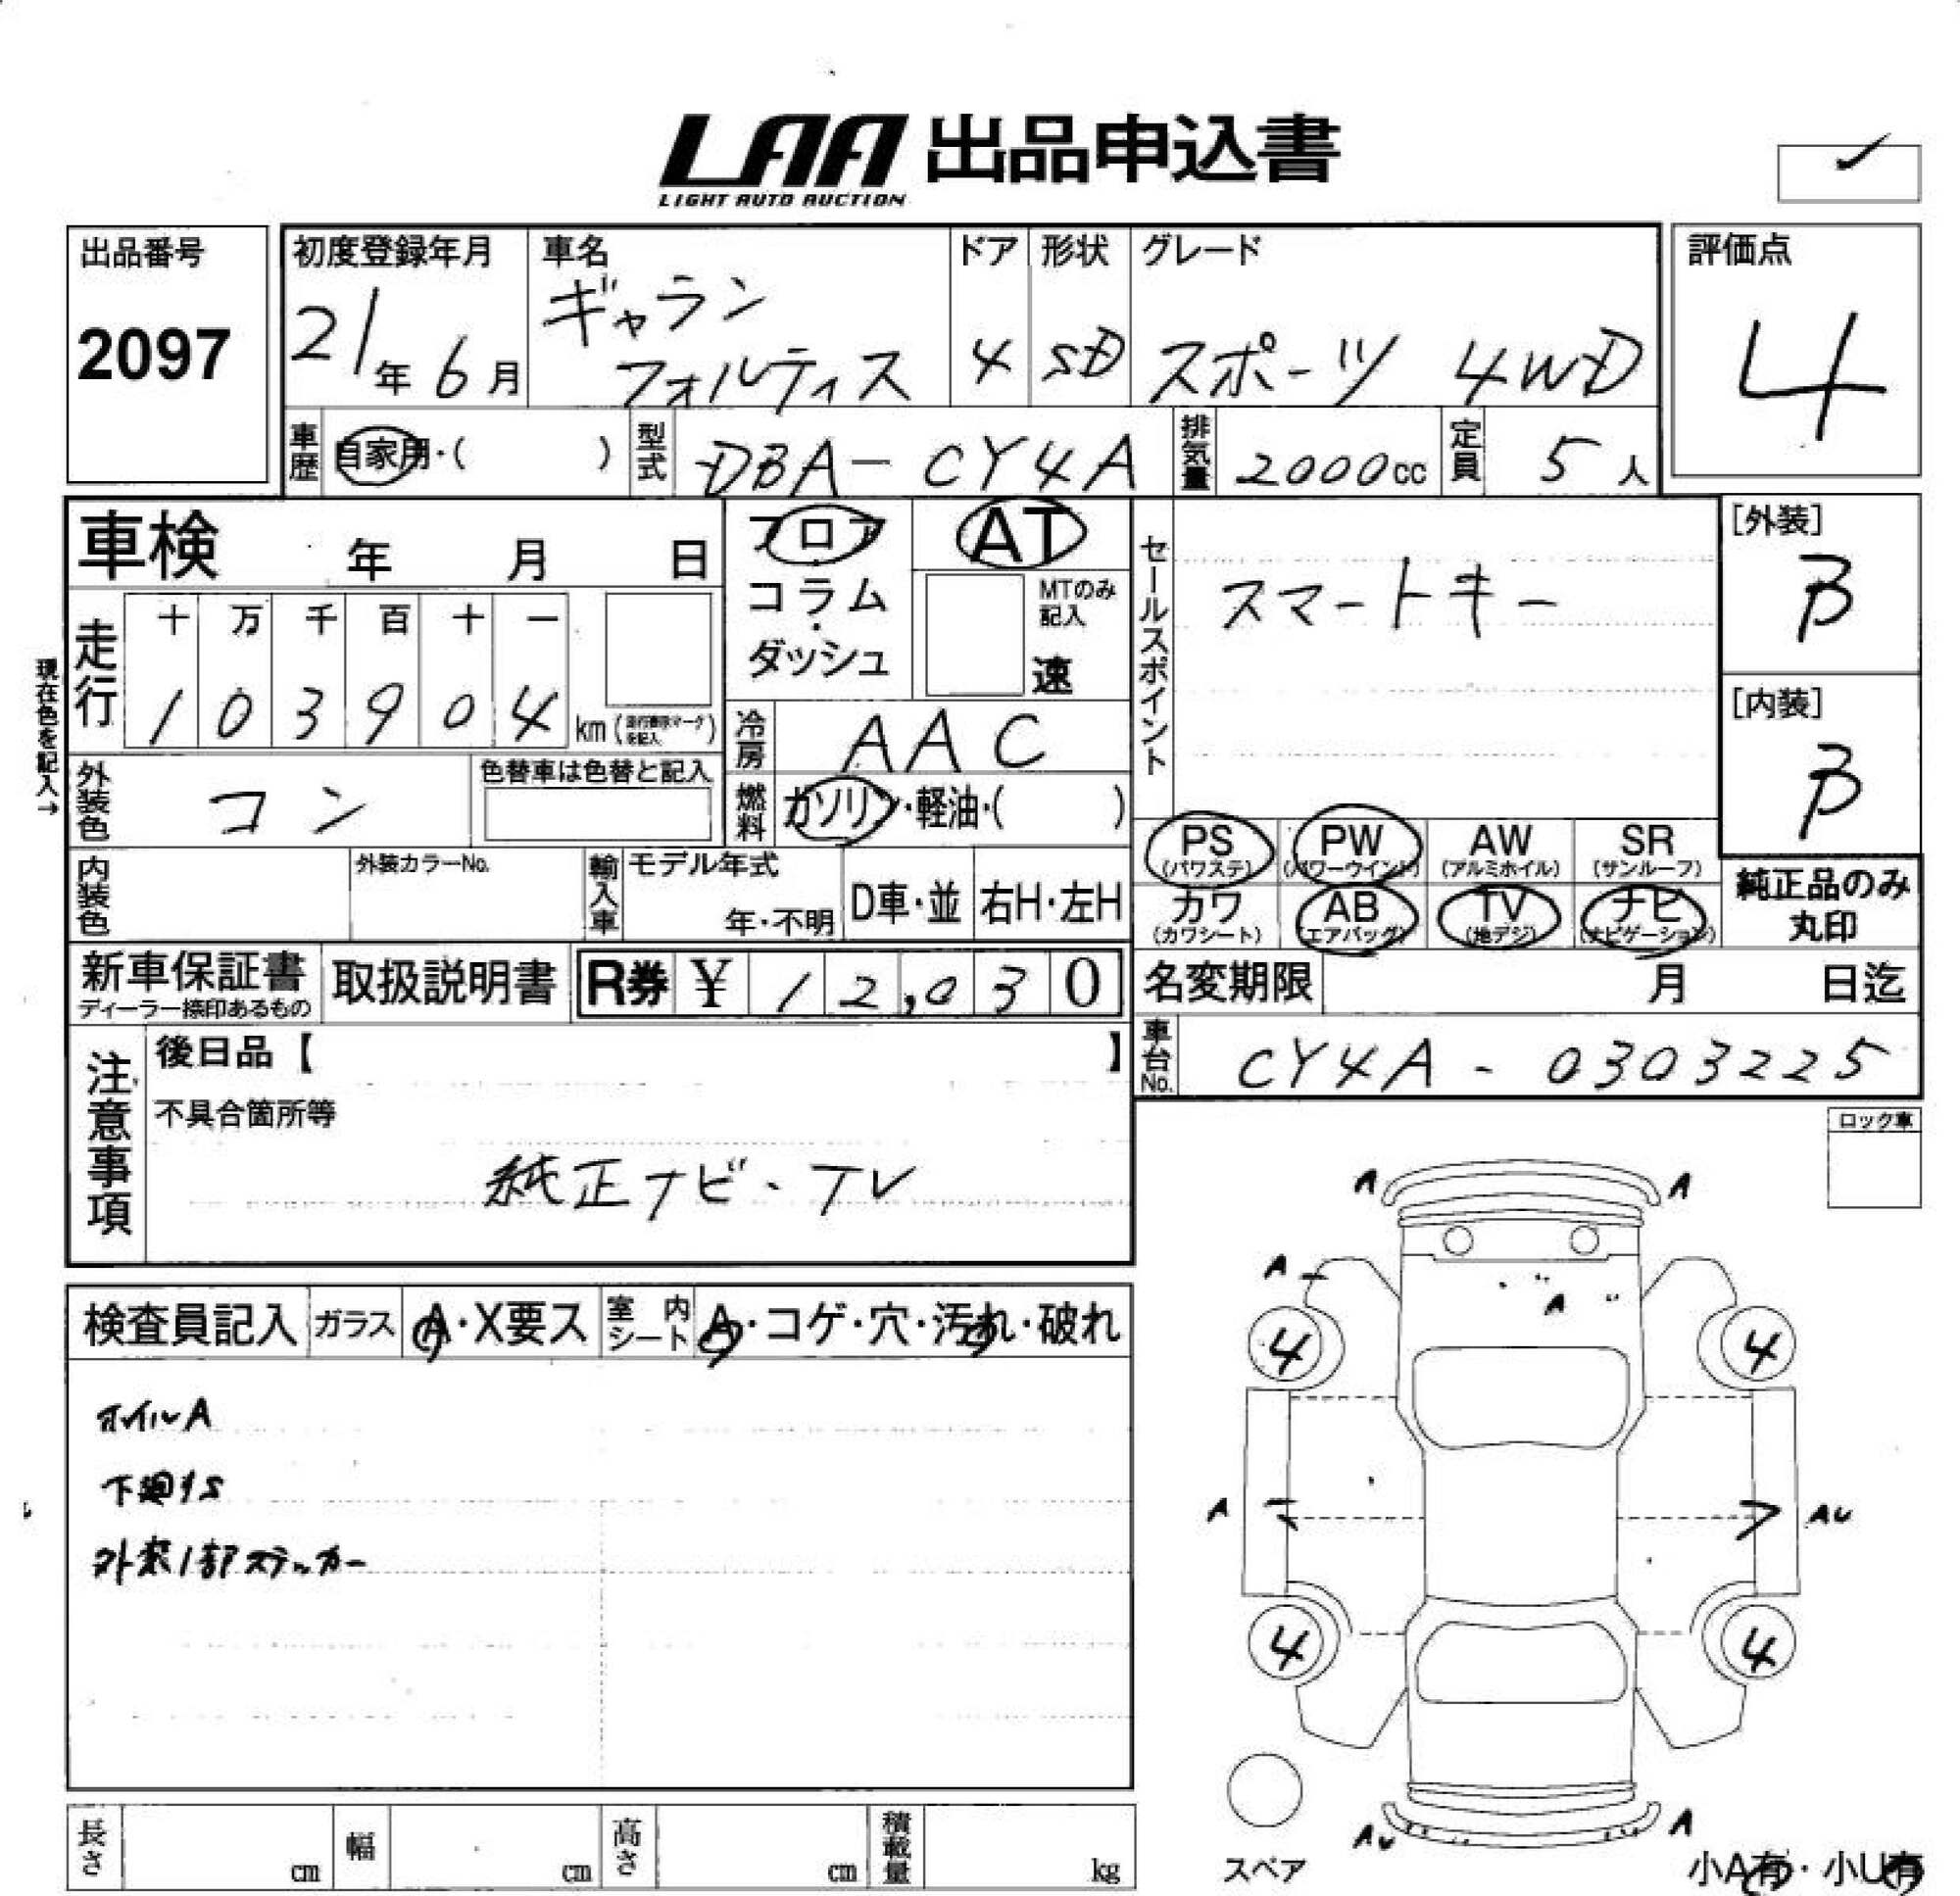 LAA 出品申込書
LIGHT AUTO AUCTION
出品番号
2097
初度登録年月
21年 6月
車名
ギャラン
フォルティス
ドア
4
形状
SD
グレード
スポーツ 4WD
評価点
4
車歴
自家用・( )
型式
DBA-CY4A
排気量
2000cc
定員
5人
車検 年 月 日
フロア
コラム
・
ダッシュ
AT
MTのみ
記入
速
セールスポイント
スマートキー
[外装]
B
[内装]
B
現在色を記入→
走行
十 万 千 百 十 一
1 0 3 9 0 4 km
冷房
AAC
外装色
コン
色替車は色替と記入
燃料
ガソリン・軽油・( )
PS
(パワステ)
PW
(パワーウインド)
AW
(アルミホイル)
SR
(サンルーフ)
カワ
(カワシート)
AB
(エアバッグ)
TV
(地デジ)
ナビ
(ナビゲーション)
純正品のみ
丸印
内装色
外装カラーNo.
輸入車
モデル年式
年・不明
D車・並
右H・左H
新車保証書
ディーラー捺印あるもの
取扱説明書
R券 ¥ 12,030
名変期限 月 日迄
車台No.
CY4A-0303225
注意事項
後日品【 】
不具合箇所等
純正ナビ・TV
ロック車
検査員記入
ガラス
A・X要ス
室内
シート
A・コゲ・穴・汚れ・破れ
ホイルA
下廻りS
外装1部ステッカー
A A
A
A
4 4
A AU
4 4
AU A
スペア
小A有・小U有
長さ cm
幅 cm
高さ cm
積載量 kg